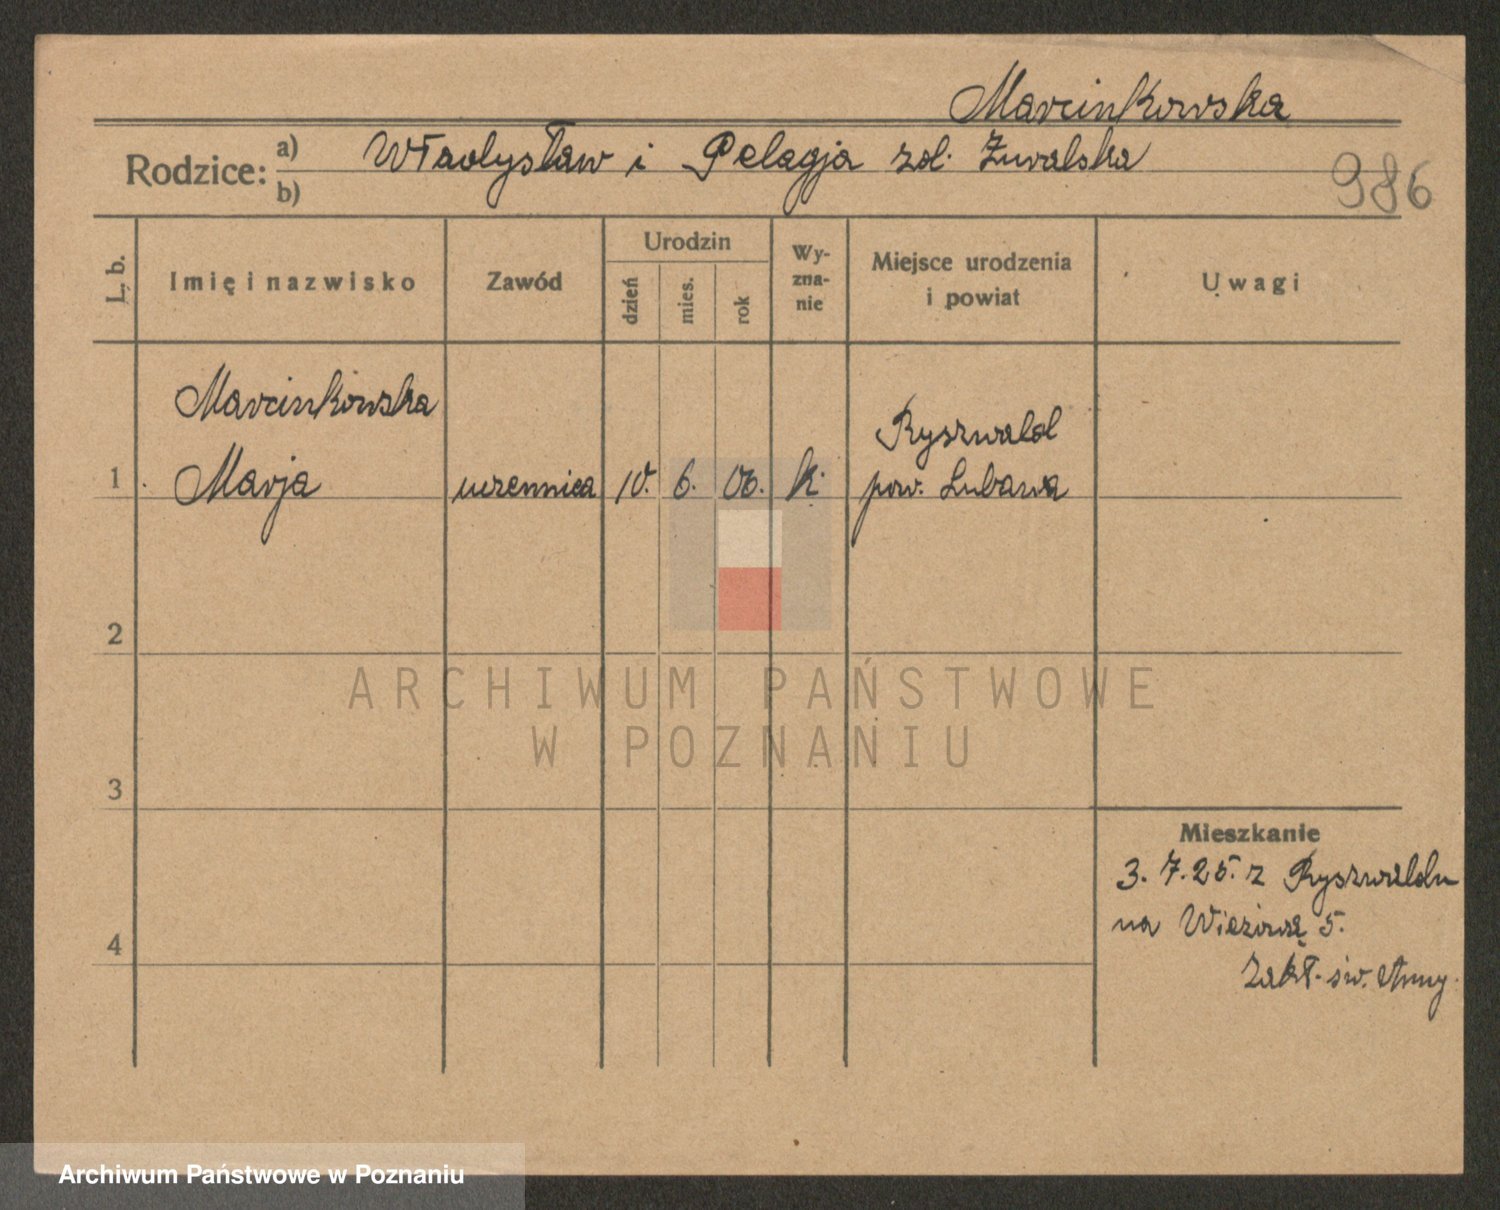 Marcinkowska
Rodzice: a) Władysław i Pelagja zd. Żuralska
b)
986
L. b.
Imię i nazwisko
Zawód
Urodzin
dzień
mies.
rok
Wy-
zna-
nie
Miejsce urodzenia
i powiat
Uwagi
Marcinkowska
Ryszwald
1 Marja uczennica 10. 6. 06. k. pow. Lubawa
2
ARCHIWUM PAŃSTWOWE
W POZNANIU
3
Mieszkanie
3. 7. 25. z Ryszwaldu
na Wieżową 5.
4
Zakł. św. Anny.
Archiwum Państwowe w Poznaniu